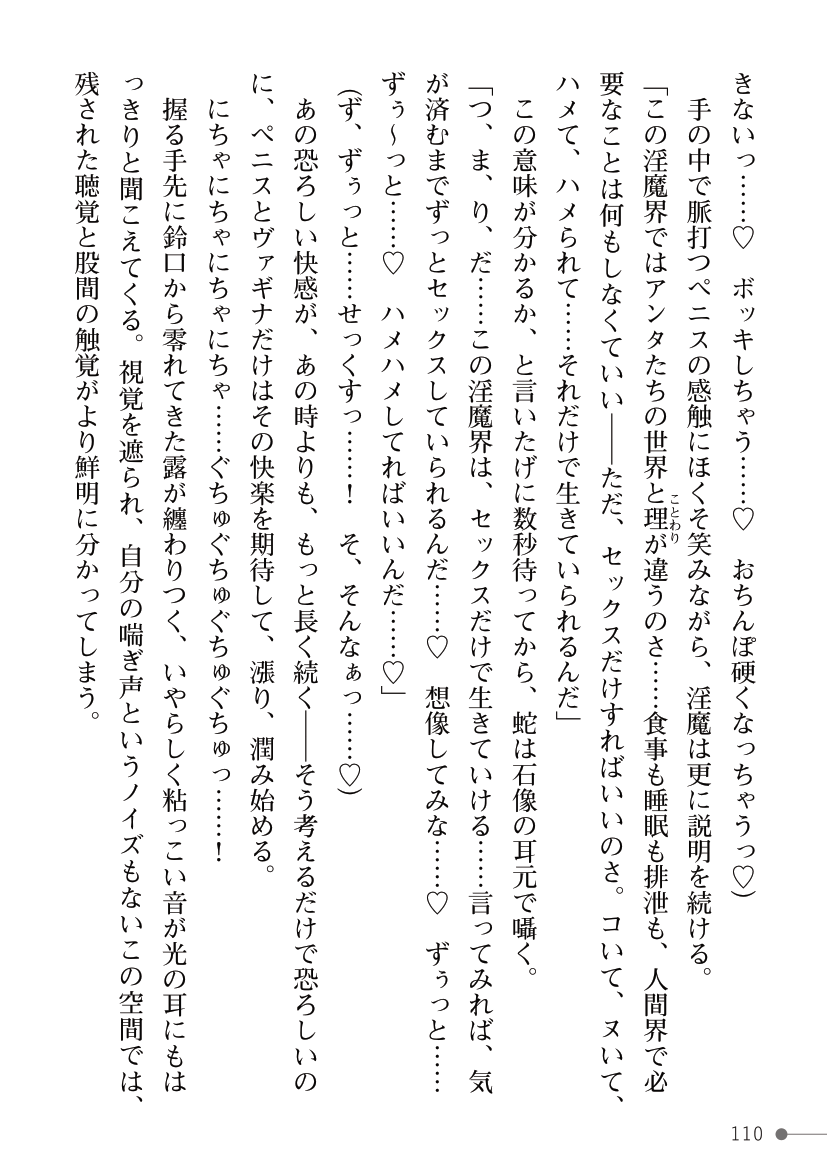 きないっ……♡　ボッキしちゃう……♡　おちんぽ硬くなっちゃうっ♡）
　手の中で脈打つペニスの感触にほくそ笑みながら、淫魔は更に説明を続ける。
「この淫魔界ではアンタたちの世界と理が違うのさ……食事も睡眠も排泄も、人間界で必
ことわり
要なことは何もしなくていい――ただ、セックスだけすればいいのさ。コいて、ヌいて、
ハメて、ハメられて……それだけで生きていられるんだ」
　この意味が分かるか、と言いたげに数秒待ってから、蛇は石像の耳元で囁く。
「つ、ま、り、だ……この淫魔界は、セックスだけで生きていける……言ってみれば、気
が済むまでずっとセックスしていられるんだ……♡　想像してみな……♡　ずぅっと……
ずぅ～っと……♡　ハメハメしてればいいんだ……♡」
（ず、ずぅっと……せっくすっ……！　そ、そんなぁっ……♡）
　あの恐ろしい快感が、あの時よりも、もっと長く続く――そう考えるだけで恐ろしいの
に、ペニスとヴァギナだけはその快楽を期待して、漲り、潤み始める。
　にちゃにちゃにちゃにちゃ……ぐちゅぐちゅぐちゅぐちゅっ……！
　握る手先に鈴口から零れてきた露が纏わりつく、いやらしく粘っこい音が光の耳にもは
っきりと聞こえてくる。視覚を遮られ、自分の喘ぎ声というノイズもないこの空間では、
残された聴覚と股間の触覚がより鮮明に分かってしまう。
110